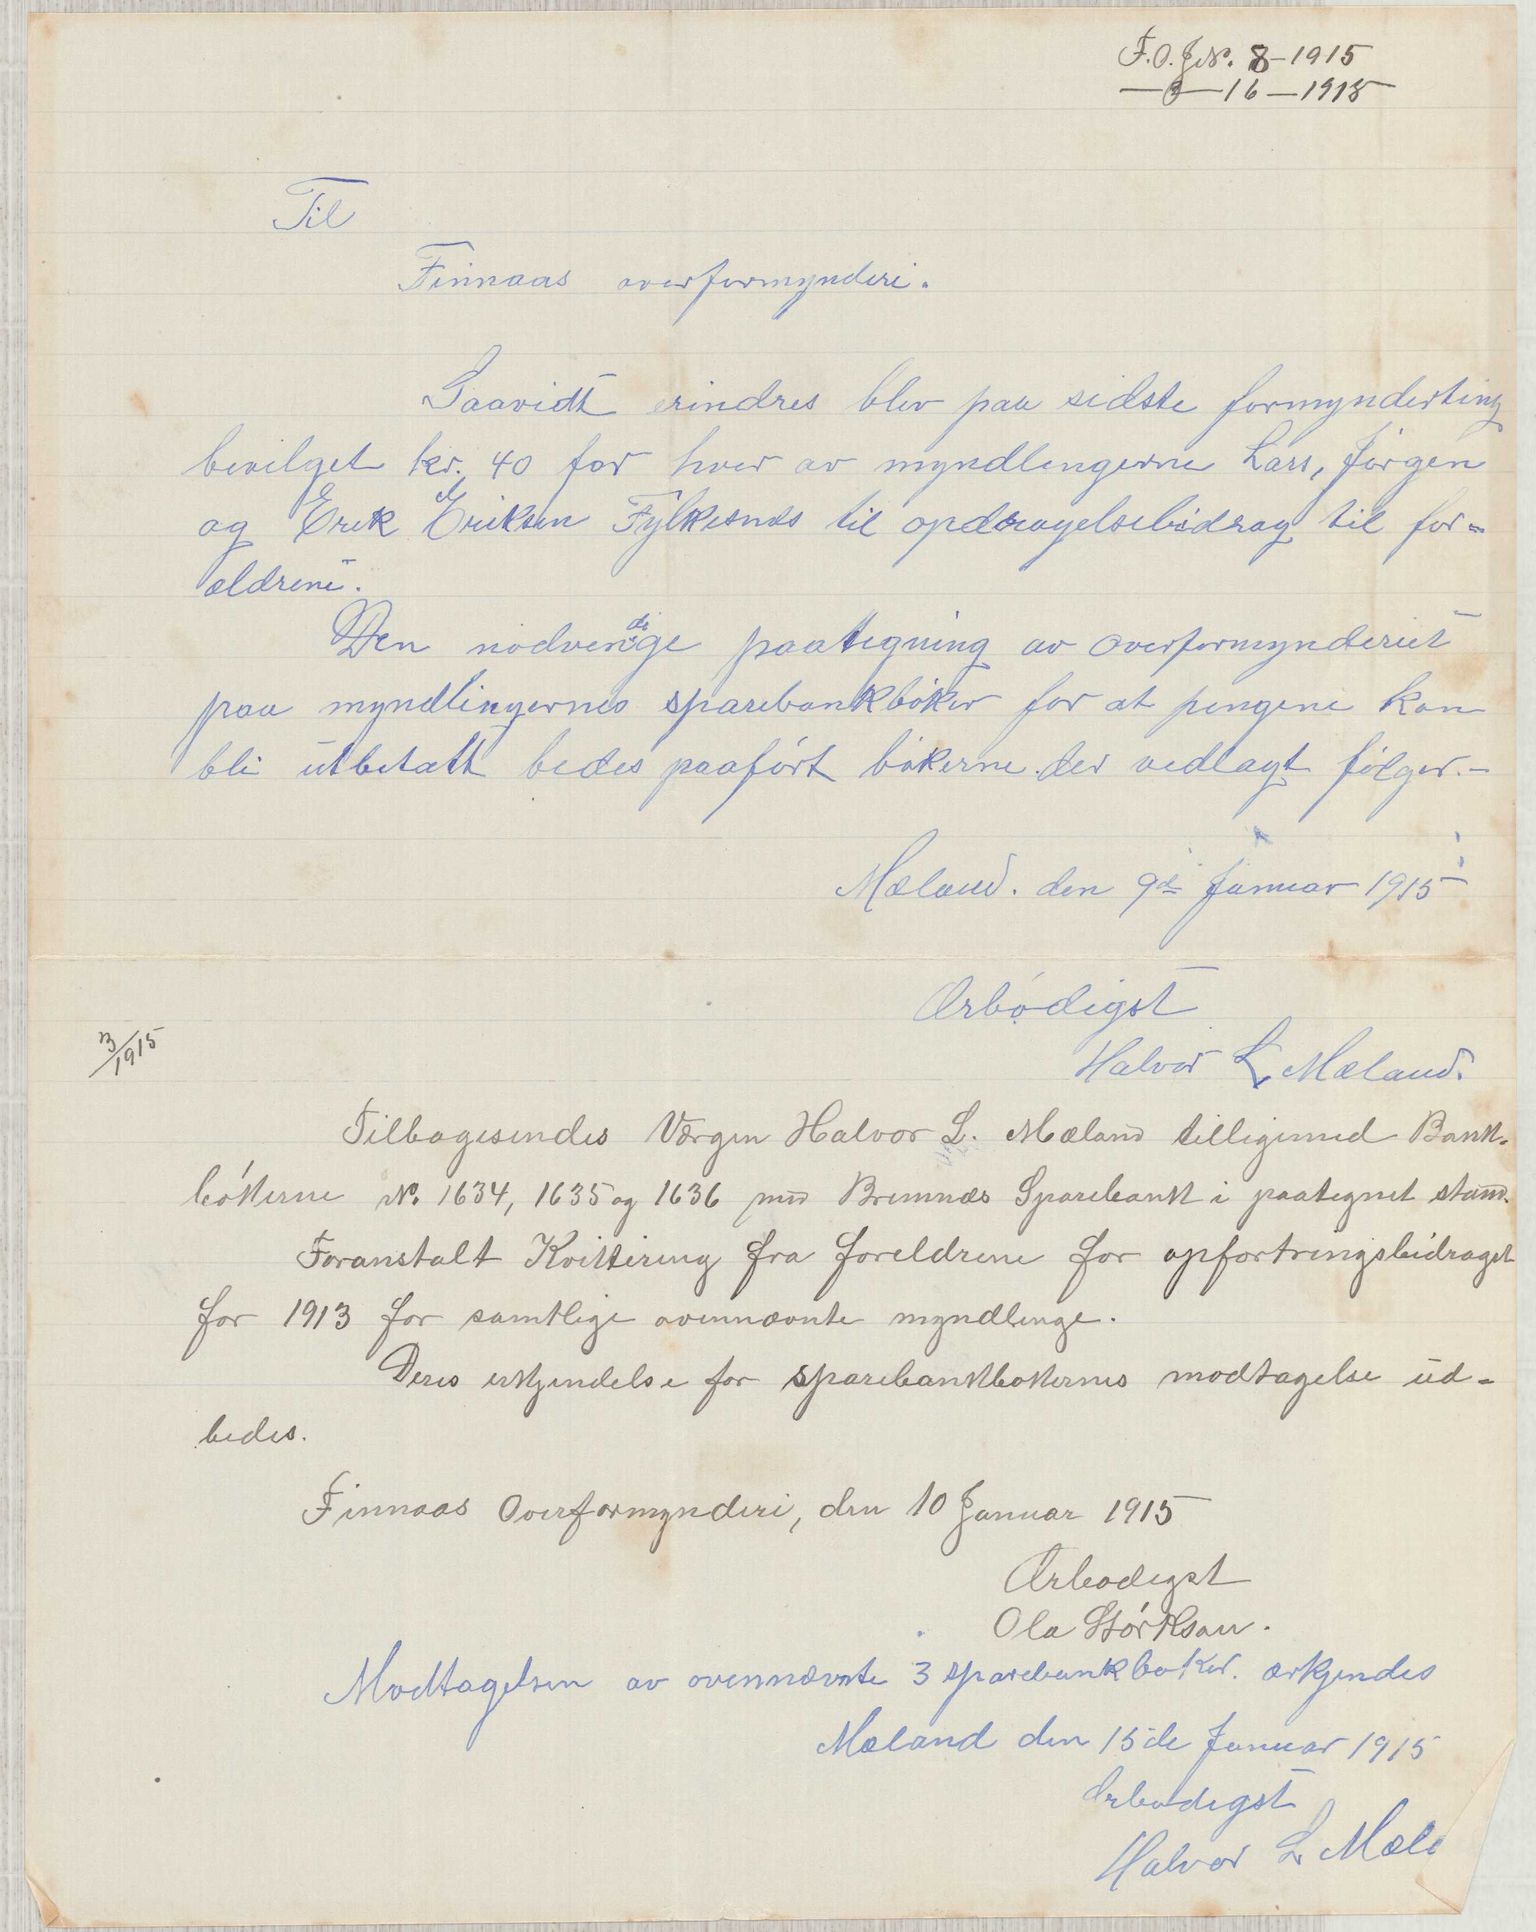 F.O.J.No. 8-1915
— 16 — 1915
Til
Finnaas overformynderi.
Saavidt erindres blev paa sidste formynderting
bevilget kr. 40 for hver av myndlingerne Lars, Jørgen
og Erik Eriksen Fylkesnes til opdragelsebidrag til for-
ældrene.
Den nødvendige paategning av overformynderiet
paa myndlingernes sparebankbøker for at pengene kan
bli utbetalt bedes paaført bøkerne der vedlagt følger.-
Mæland. den 9de Januar 1915
Ærbødigst
Halvor L. Mæland.
3/1915
Tilbagesendes Værgen Halvor L. Mæland tilligemed Bank-
bókerne No. 1634, 1635 og 1636 med Bremnæs Sparebank i paategnet stand.
Foranstalt Kvittering fra foreldrene for opfostringsbidraget
for 1913 for samtlige ovennævnte myndlinge.
Deres erkjendelse for sparebankbokernes modtagelse ud-
bedes.
Finnaas Overformynderi, den 10 Januar 1915
Ærbodigst
Ola Størksen.
Modtagelsen av ovennævnte 3 sparebankboker. ærkjendes
Mæland den 15de Januar 1915
Ærbodigst
Halvor L Mæla